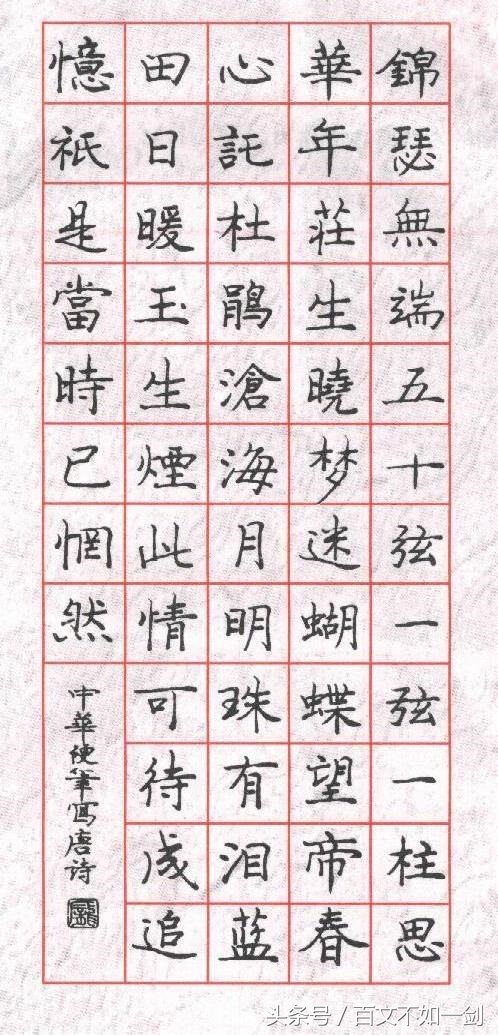 錦瑟無端五十弦一弦一柱思
華年莊生曉梦迷蝴蝶望帝春
心託杜鹃滄海月明珠有泪蓝
田日暖玉生煙此情可待成追
憶祇是當時已惘然
中華硬筆寫唐诗
头条号／百文不如一剑